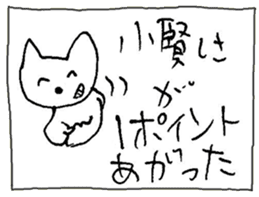 小賢しさ
が
1ポイント
あがった